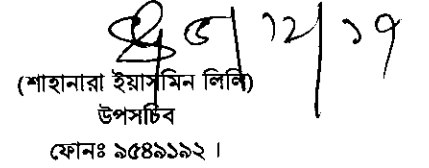 ৫/১২/১৭
(শাহানারা ইয়াসমিন লিলি)
উপসচিব
ফোনঃ ৯৫৪৯১৯২ ।